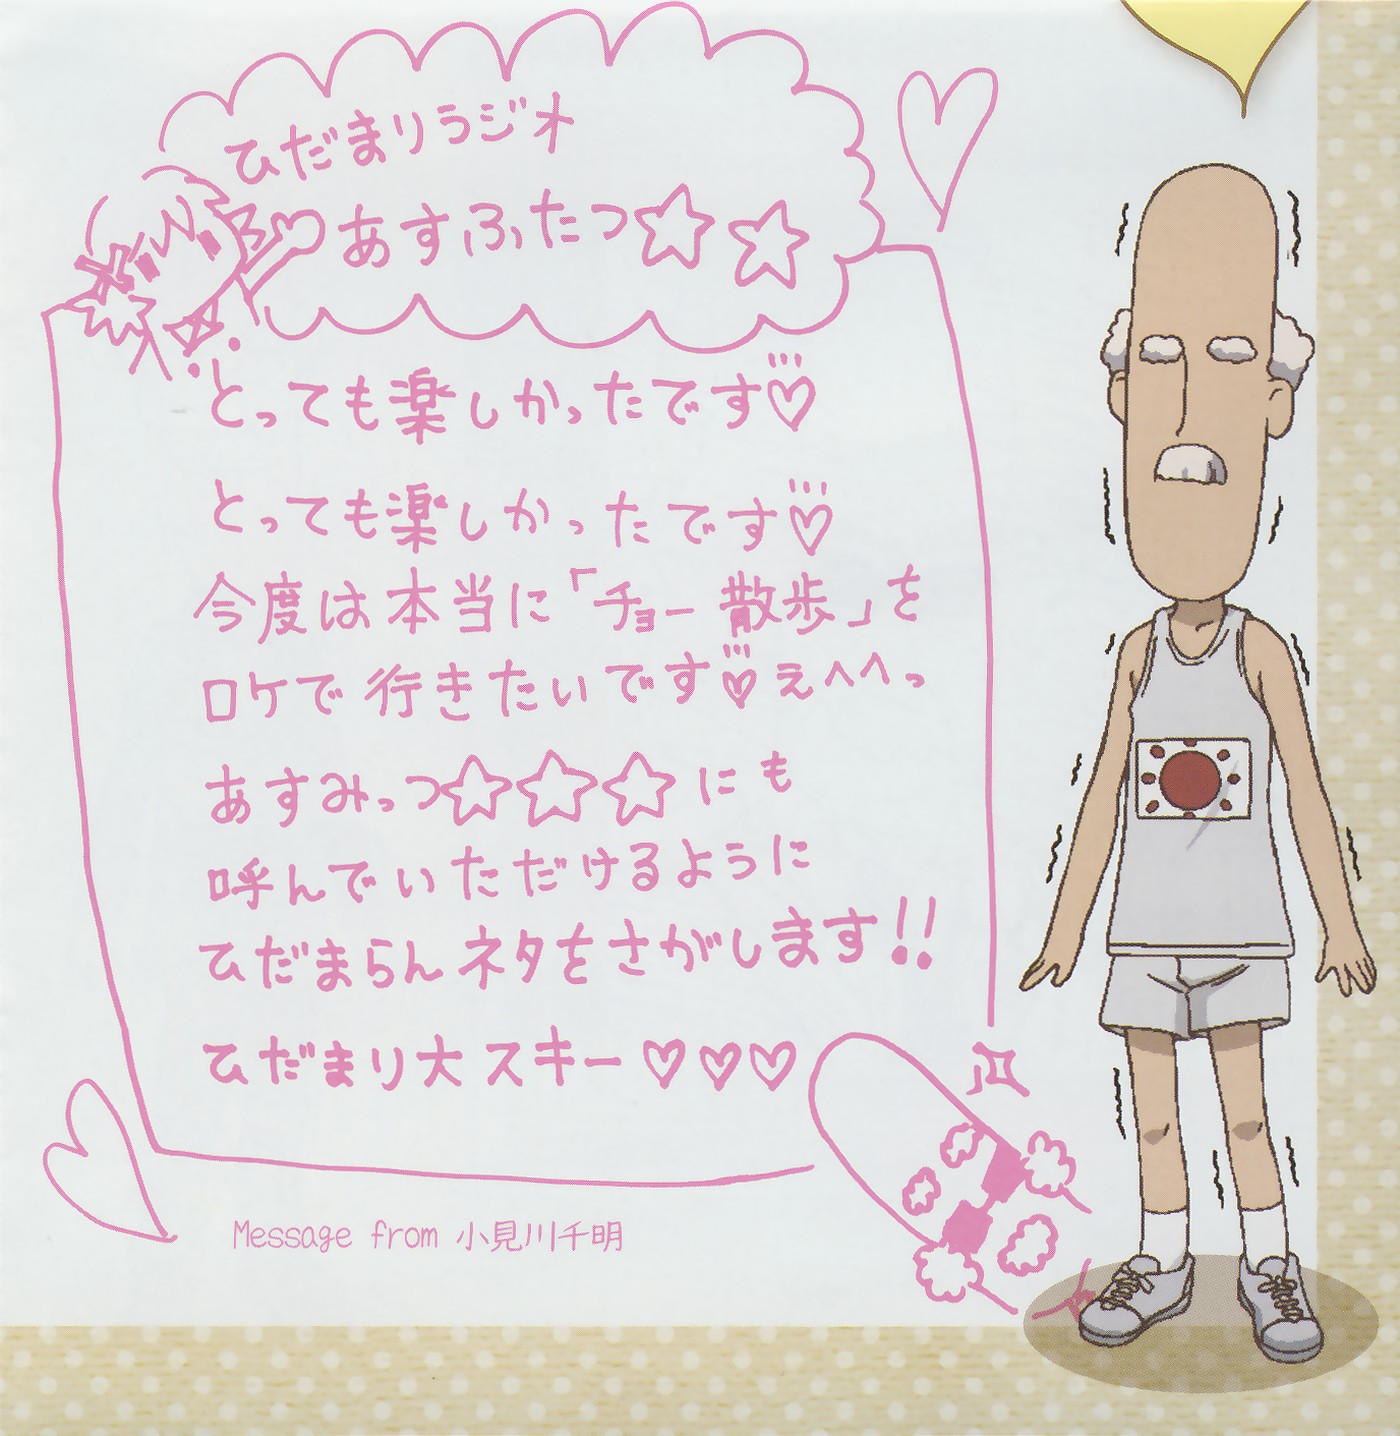 ひだまりラジオ
あすふたつ☆☆
とっても楽しかったです♡
とっても楽しかったです♡
今度は本当に「チョー散歩」を
ロケで行きたいです♡えへへっ
あすみっつ☆☆☆にも
呼んでいただけるように
ひだまらんネタをさがします!!
ひだまり大スキー♡♡♡
Message from 小見川千明